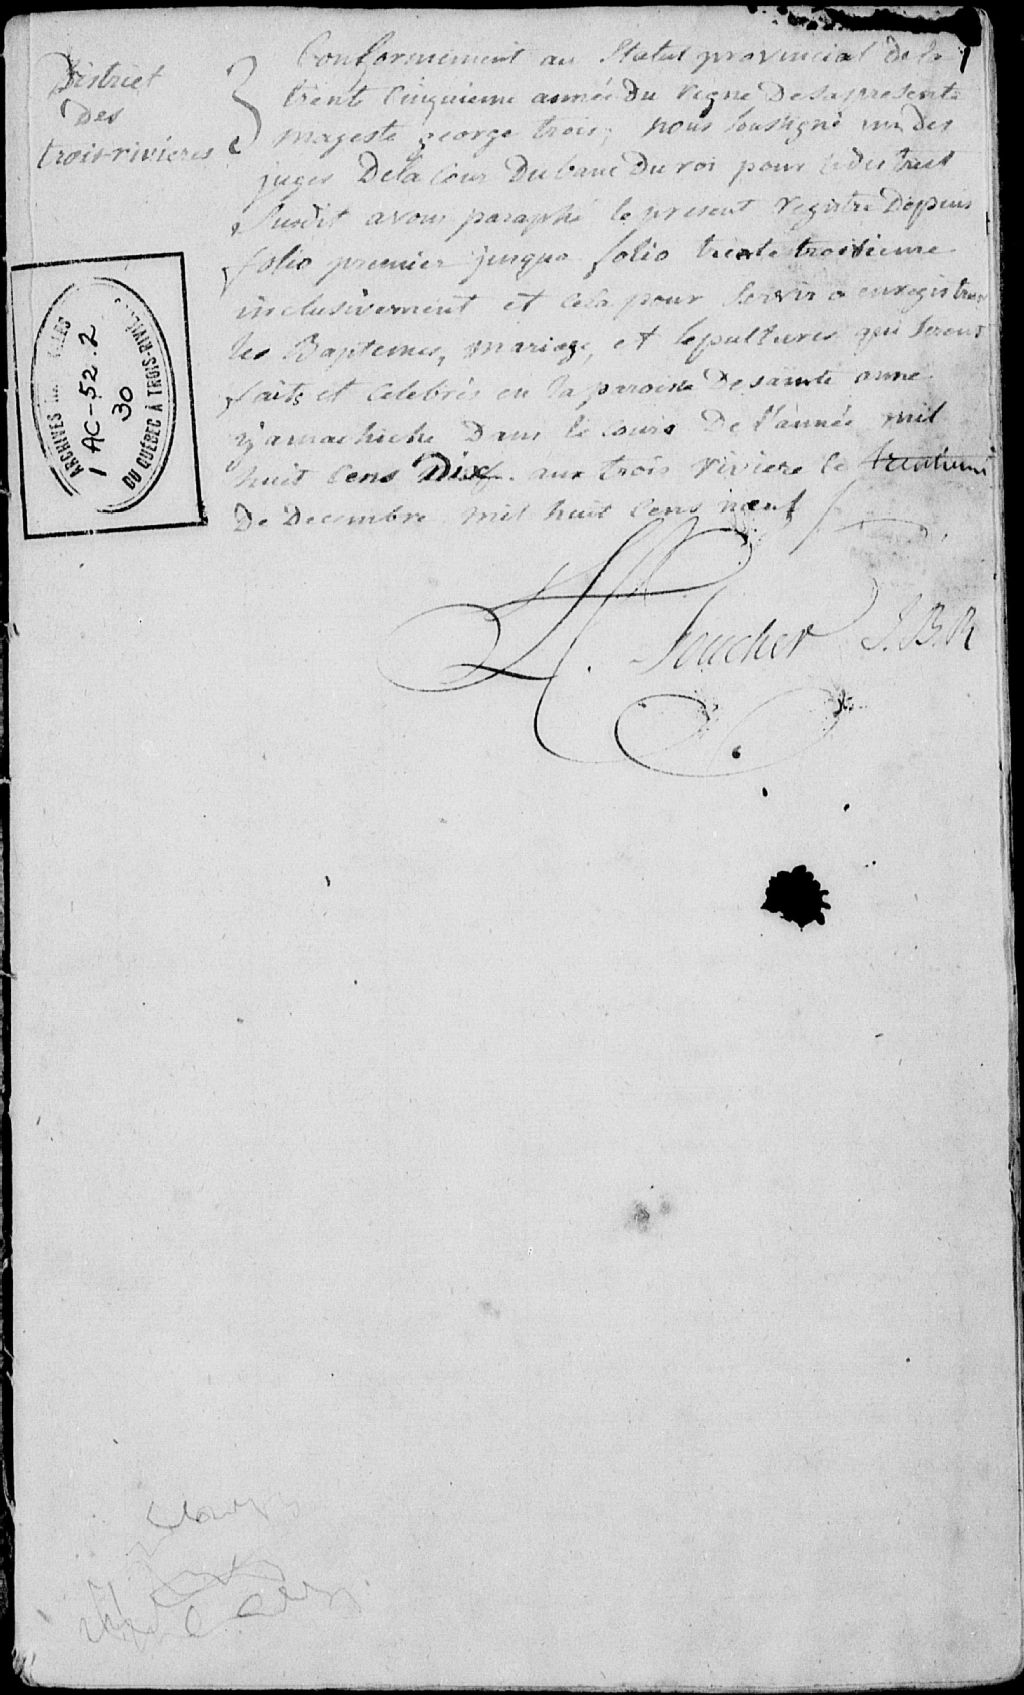 District
Des
trois-rivieres
1
Conformement au Statut provincial de la
trente Cinquieme année Du regne Desa presente
magesté george trois, nous Soussigné un des
juges Dela Cour Dubanc Du roi pour ledistrict
Susdit avons paraphé le present registre Depuis
folio premier jusqua folio trente troisieme
inclusivement et cela pour Servir a enregistrer
les Baptemes, mariage, et Sepultures qui Seront
faits et Celebrés en la paroisse De sainte anne
yamachiche Dans le cours De l'année mil
huit Cens Dix. aux trois riviere le trentieme
De Decembre mil huit Cens neuf
L. C. Foucher J.B.R
ARCHIVES
1 AC-52.2
30
DU QUÉBEC À TROIS-RIVI